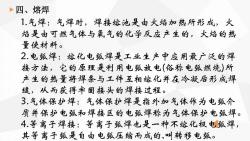 四、熔焊
1.气焊：气焊时，焊接熔池是由火焰加热所形成，火
焰是由可燃气体与氧气的化学反应产生的，火焰的热
量使材料。
2.电弧焊：熔化电弧焊是工业生产中应用最广泛的焊
接方法，它的原理是利用电弧放电(俗称电弧燃烧)所
产生的热量将焊条与工件互相熔化并在冷凝后形成焊
缝，从而获得牢固接头的焊接过程。
3.气体保护焊：气体保护焊是指外加气体作为电弧介
质并保护电弧和焊接区的电弧焊称为气体保护电弧焊。
4.等离子焊接：等离子弧焊也是一种不熔化极电弧焊，
其等离子弧是自由电弧压缩而成的,叫转移电弧。